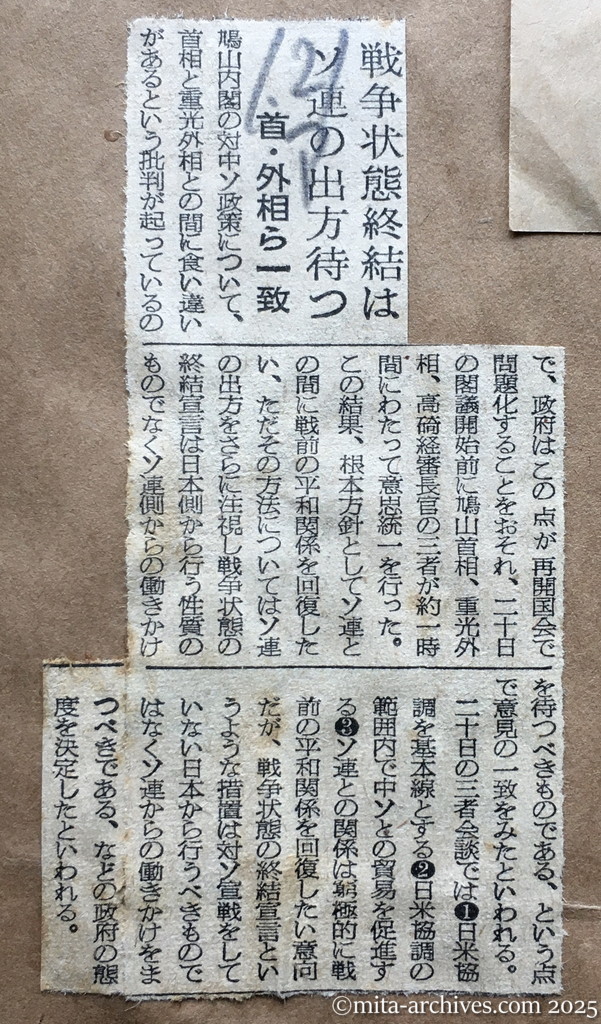 戦争状態終結は
ソ連の出方待つ
首・外相ら一致
鳩山内閣の対中ソ政策について、
首相と重光外相との間に食い違い
があるという批判が起っているの
で、政府はこの点が再開国会で
問題化することをおそれ、二十日
の閣議開始前に鳩山首相、重光外
相、高碕経審長官の三者が約一時
間にわたって意志統一を行った。
この結果、根本方針としてソ連と
の間に戦前の平和関係を回復した
い、ただその方法についてはソ連
の出方をさらに注視し戦争状態の
終結宣言は日本側から行う性質の
ものでなくソ連側からの働きかけ
を待つべきものである、という点
で意見の一致をみたといわれる。
二十日の三者会談では❶日米協
調を基本線とする❷日米協調の
範囲内で中ソとの貿易を促進す
る❸ソ連との関係は窮極的に戦
前の平和関係を回復したい意向
だが、戦争状態の終結宣言とい
うような措置は対ソ宣戦をして
いない日本から行うべきもので
はなくソ連からの働きかけをま
つべきである、などの政府の態
度を決定したといわれる。
©mita-archives.com 2025